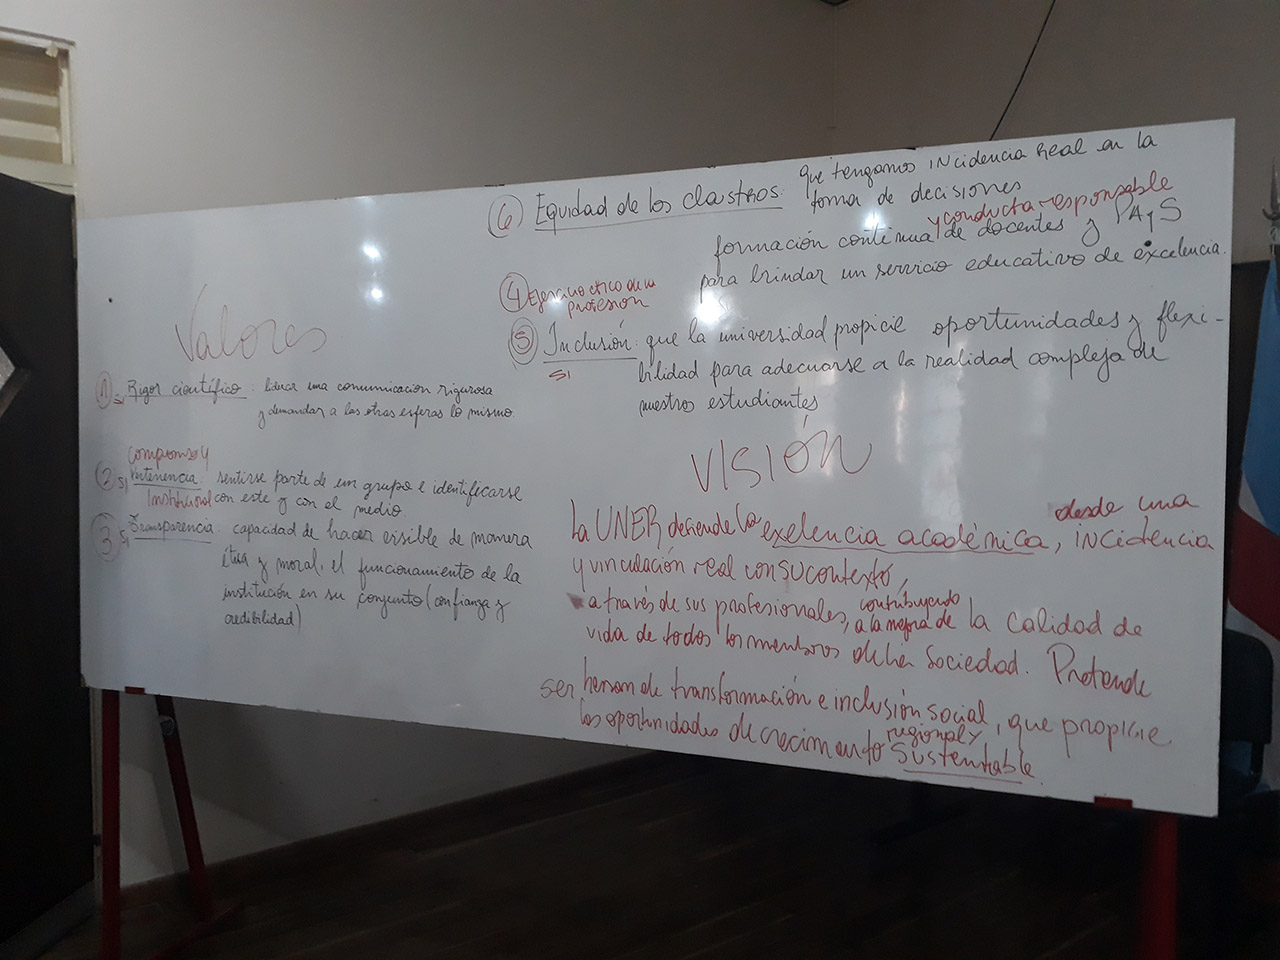 Valores
① SI Rigor científico: liderar una comunicación rigurosa
y demandar a las otras esferas lo mismo.
Compromiso y
② SI Pertenencia: sentirse parte de un grupo e identificarse
Institucional con este y con el medio
③ SI Transparencia: capacidad de hacer visible de manera
ética y moral, el funcionamiento de la
institución en su conjunto (confianza y
credibilidad)
⑥ Equidad de los claustros: que tengamos incidencia real en la
toma de decisiones
y conducta responsable
formación continua de docentes y PAyS
para brindar un servicio educativo de excelencia.
④ Ejercicio ético de la
profesión
⑤ Inclusión: que la universidad propicie oportunidades y flexi-
SI
bilidad para adecuarse a la realidad compleja de
nuestros estudiantes
VISIÓN
desde una
La UNER defiende la exelencia académica, incidencia
y vinculación real con su contexto,
a través de sus profesionales, contribuyendo
a la mejora de la calidad de
vida de todos los miembros de la Sociedad. Pretende
ser de transformación e inclusión social, que propicie
las oportunidades de crecimiento regional y
sustentable.